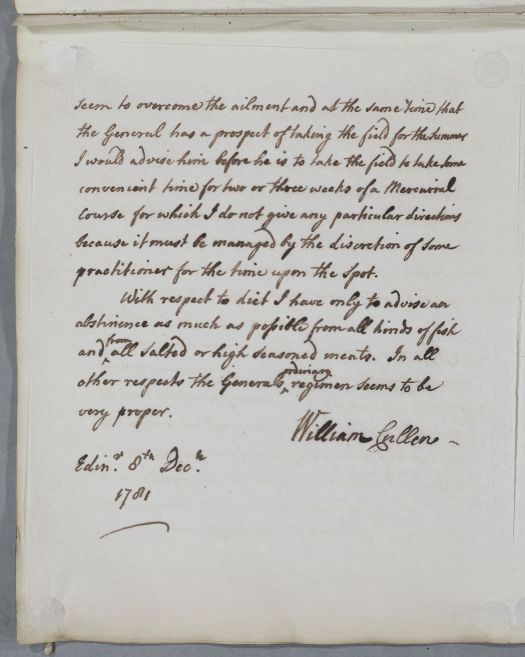 seem to overcome the ailment and at the same time that
the General has a prospect of taking the field for the summer
I would advise him before he is to take the field to take some
convenient time for two or three weeks of a Mercurial
Course for which I do not give any particular directions
because it must be managed by the discretion of some
practitioner for the time upon the spot.
With respect to diet I have only to advise an
abstinence as much as poſsible from all kinds of fish
and ^from all salted or high seasoned meats. In all
other respects the Generals ^ordinary regimen seems to be
very proper.
William Cullen
Edinr. 8th Decr.
1781